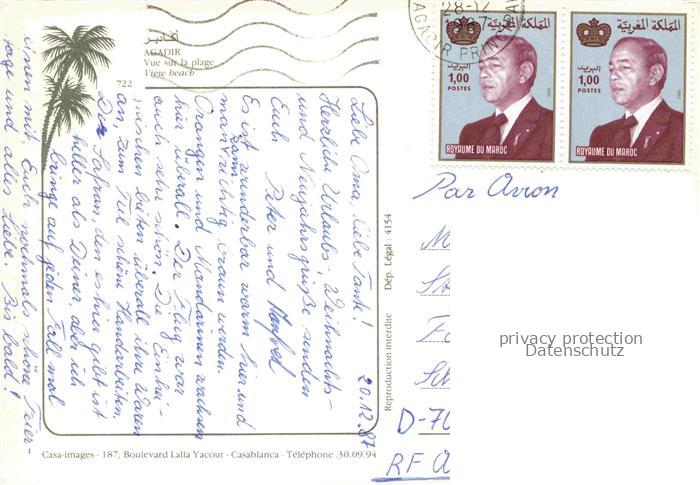 أكادير
AGADIR
Vue sur la plage
View beach
722
20.12.87
Liebe Oma, liebe Tante!
Herzliche Urlaubs-, Weihnachts-
und Neujahrsgrüße senden
Euch Peter und
Es ist wunderbar warm hier und
man kann richtig braun werden.
Orangen und Mandarinen wachsen
hier überall. Der Flug war
auch sehr schön. Die Einhei-
mischen bieten überall ihre Waren
an, zum Teil schöne Handarbeiten.
Der Safran, den es hier gibt ist
heller als Deiner, aber ich
bringe auf jeden Fall mal
einen mit. Euch nochmals schöne Feier-
tage und alles Liebe. Bis bald!
Casa-images - 187, Boulevard Lalla Yacout - Casablanca - Téléphone .30.09.94
Reproduction interdite Dép. Légal : 4154
28-12
1987
AGADIR PRINCIPAL
المملكة المغربية
البريد
1,00
POSTES
ROYAUME DU MAROC
المملكة المغربية
البريد
1,00
POSTES
ROYAUME DU MAROC
Par Avion
D-70
RF
privacy protection
Datenschutz